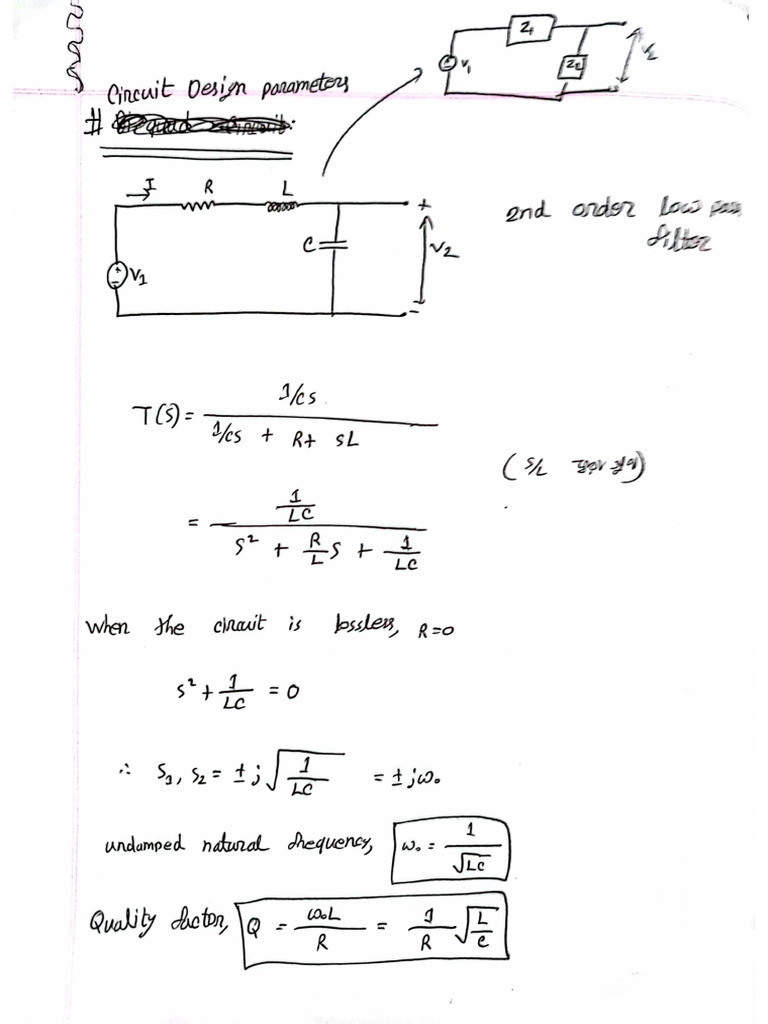 Z1
V1
Z2
V2
Circuit Design parameters
#
I R L
C
V1
+
V2
-
2nd order low pass
filter
T(S) = (1/CS) / (1/CS + R + SL)
(S/L
= (1/LC) / (S² + (R/L)S + 1/LC)
when the circuit is lossless, R=0
S² + 1/LC = 0
∴ S1, S2 = ± j√(1/LC) = ± jω₀
undamped natural frequency, ω₀ = 1/√LC
Quality factor, Q = ω₀L/R = (1/R)√(L/C)